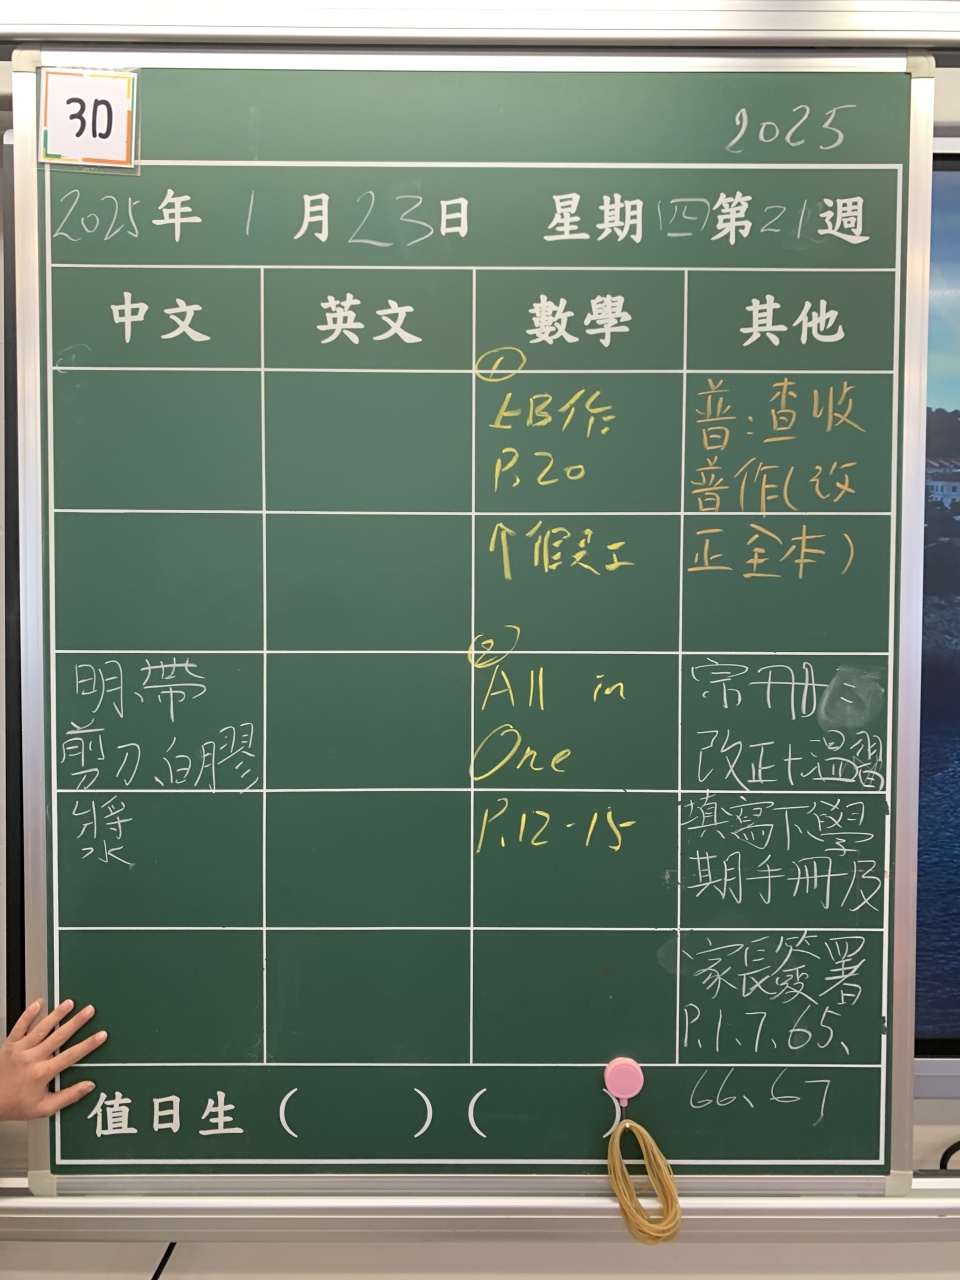 3D
2025
2025年 1月23日 星期四第21週
中文 英文 數學 其他
①
上B作
P.20
↑假完工
②
All in
One
P.12-15
普:查收
普作(改
正全本)
明、帶
剪刀、白膠
漿
宗冊:
改正+溫習
填寫下學
期手冊及
家長簽署
P.1、7、65、
66、67
值日生( )( )